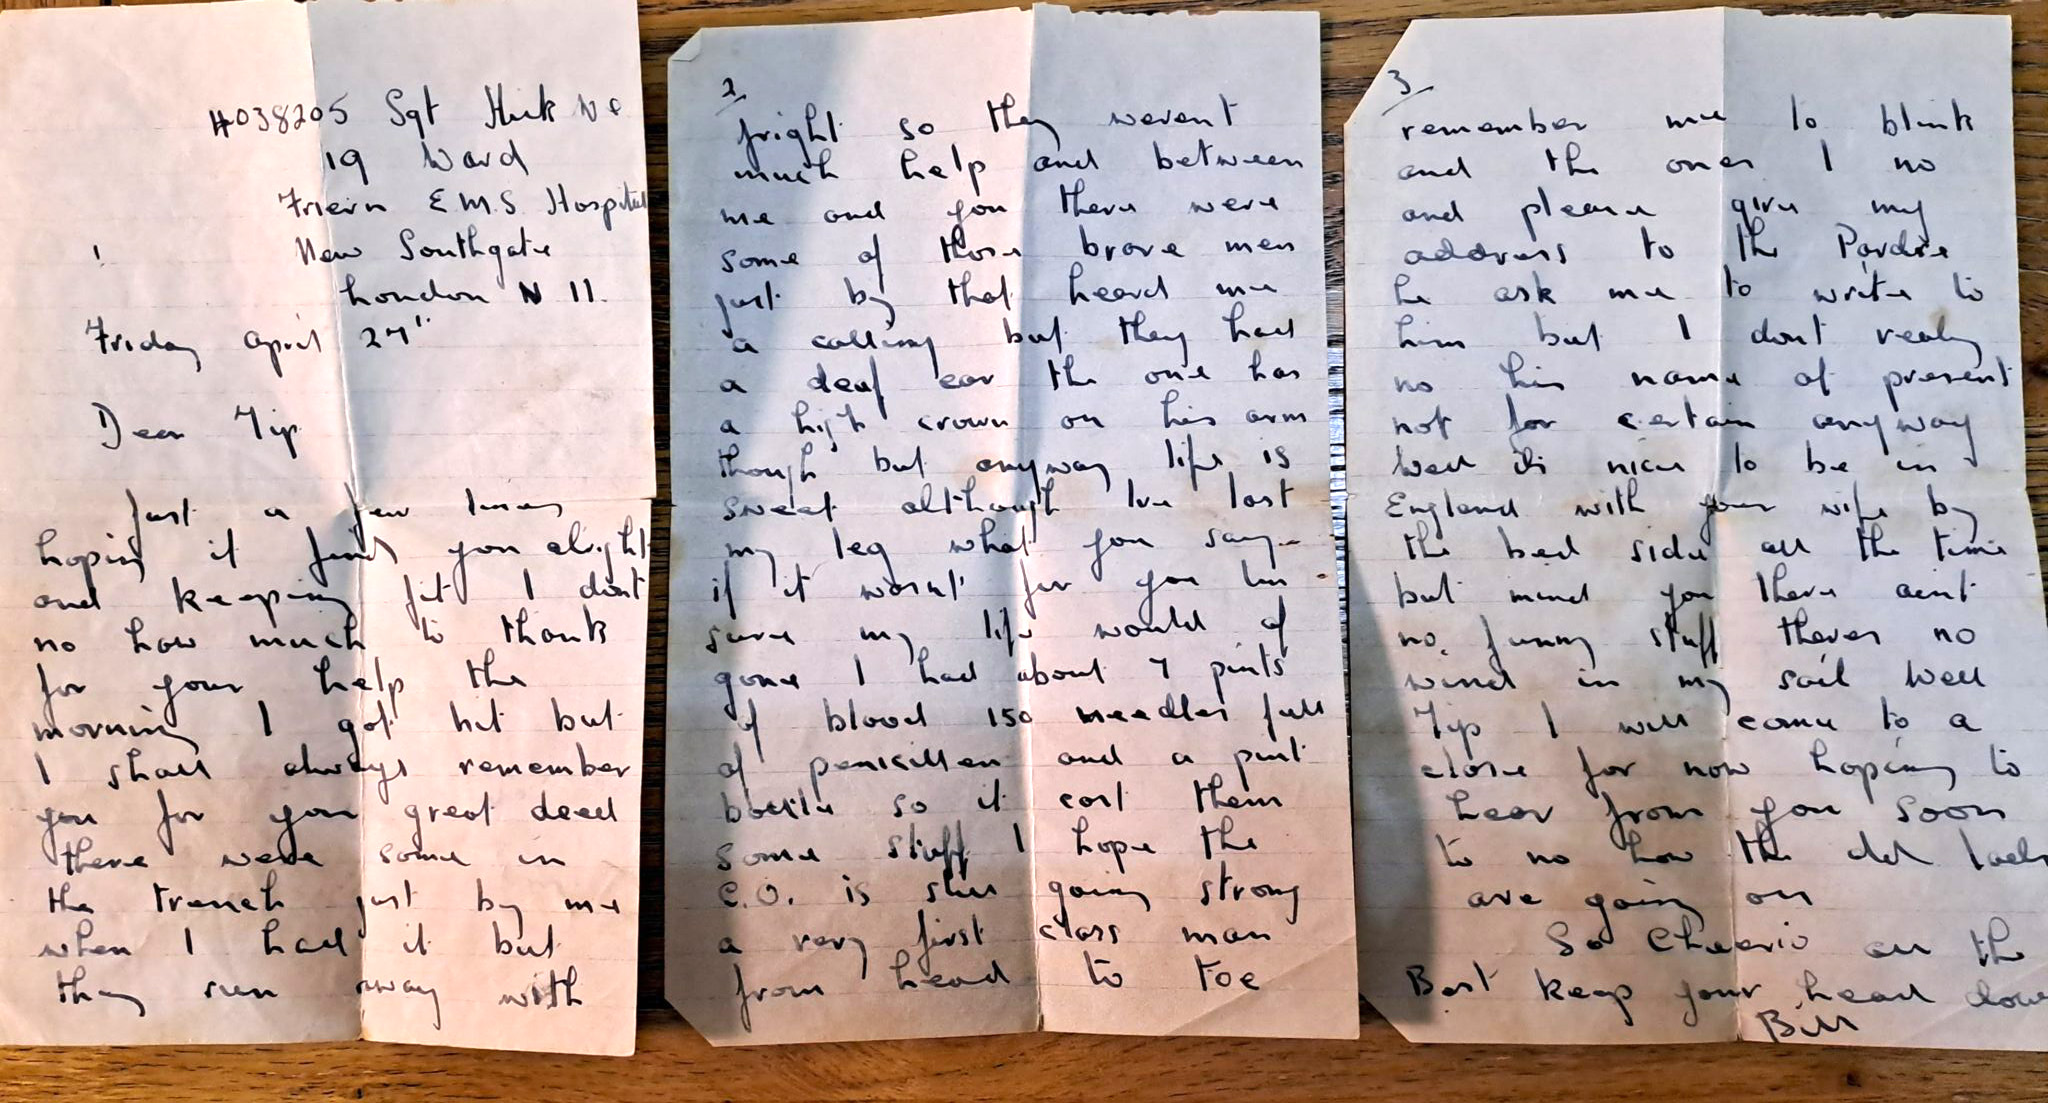 4038205 Sgt Huk W E
19 Ward
Friern E.M.S. Hospital
New Southgate
London N 11.
1
Friday April 27"
Dear Tip
Just a few lines
hoping it finds you alright
and keeping fit I dont
no how much to thank
for your help the
morning I got hit but
I shall always remember
you for your great deed
there were some in
the trench just by me
when I had it but
they run away with
2
fright so they werent
much help and between
me and you there were
some of those brave men
just by that heard me
a calling but they had
a deaf ear the one has
a high crown on his arm
though but anyway life is
sweet although Ive lost
my leg what you say
if it wasnt for you Im
sure my life would of
gone I had about 7 pints
of blood 150 needles full
of penicillen and a pint
bottle so it cost them
some stuff I hope the
C.O. is still going strong
a very first class man
from head to toe
3
remember me to blink
and the ones I no
and please give my
address to the Pardre
he ask me to write to
him but I dont realy
no his name at present
not for certain anyway
Well its nice to be in
England with your wife by
the bed side all the time
but mind you there aint
no funny stuff theres no
wind in my sail Well
Tip I will come to a
close for now hoping to
hear from you soon
to no how the old lads
are going on
So Cheerio all the
Best keep your head down
Bill